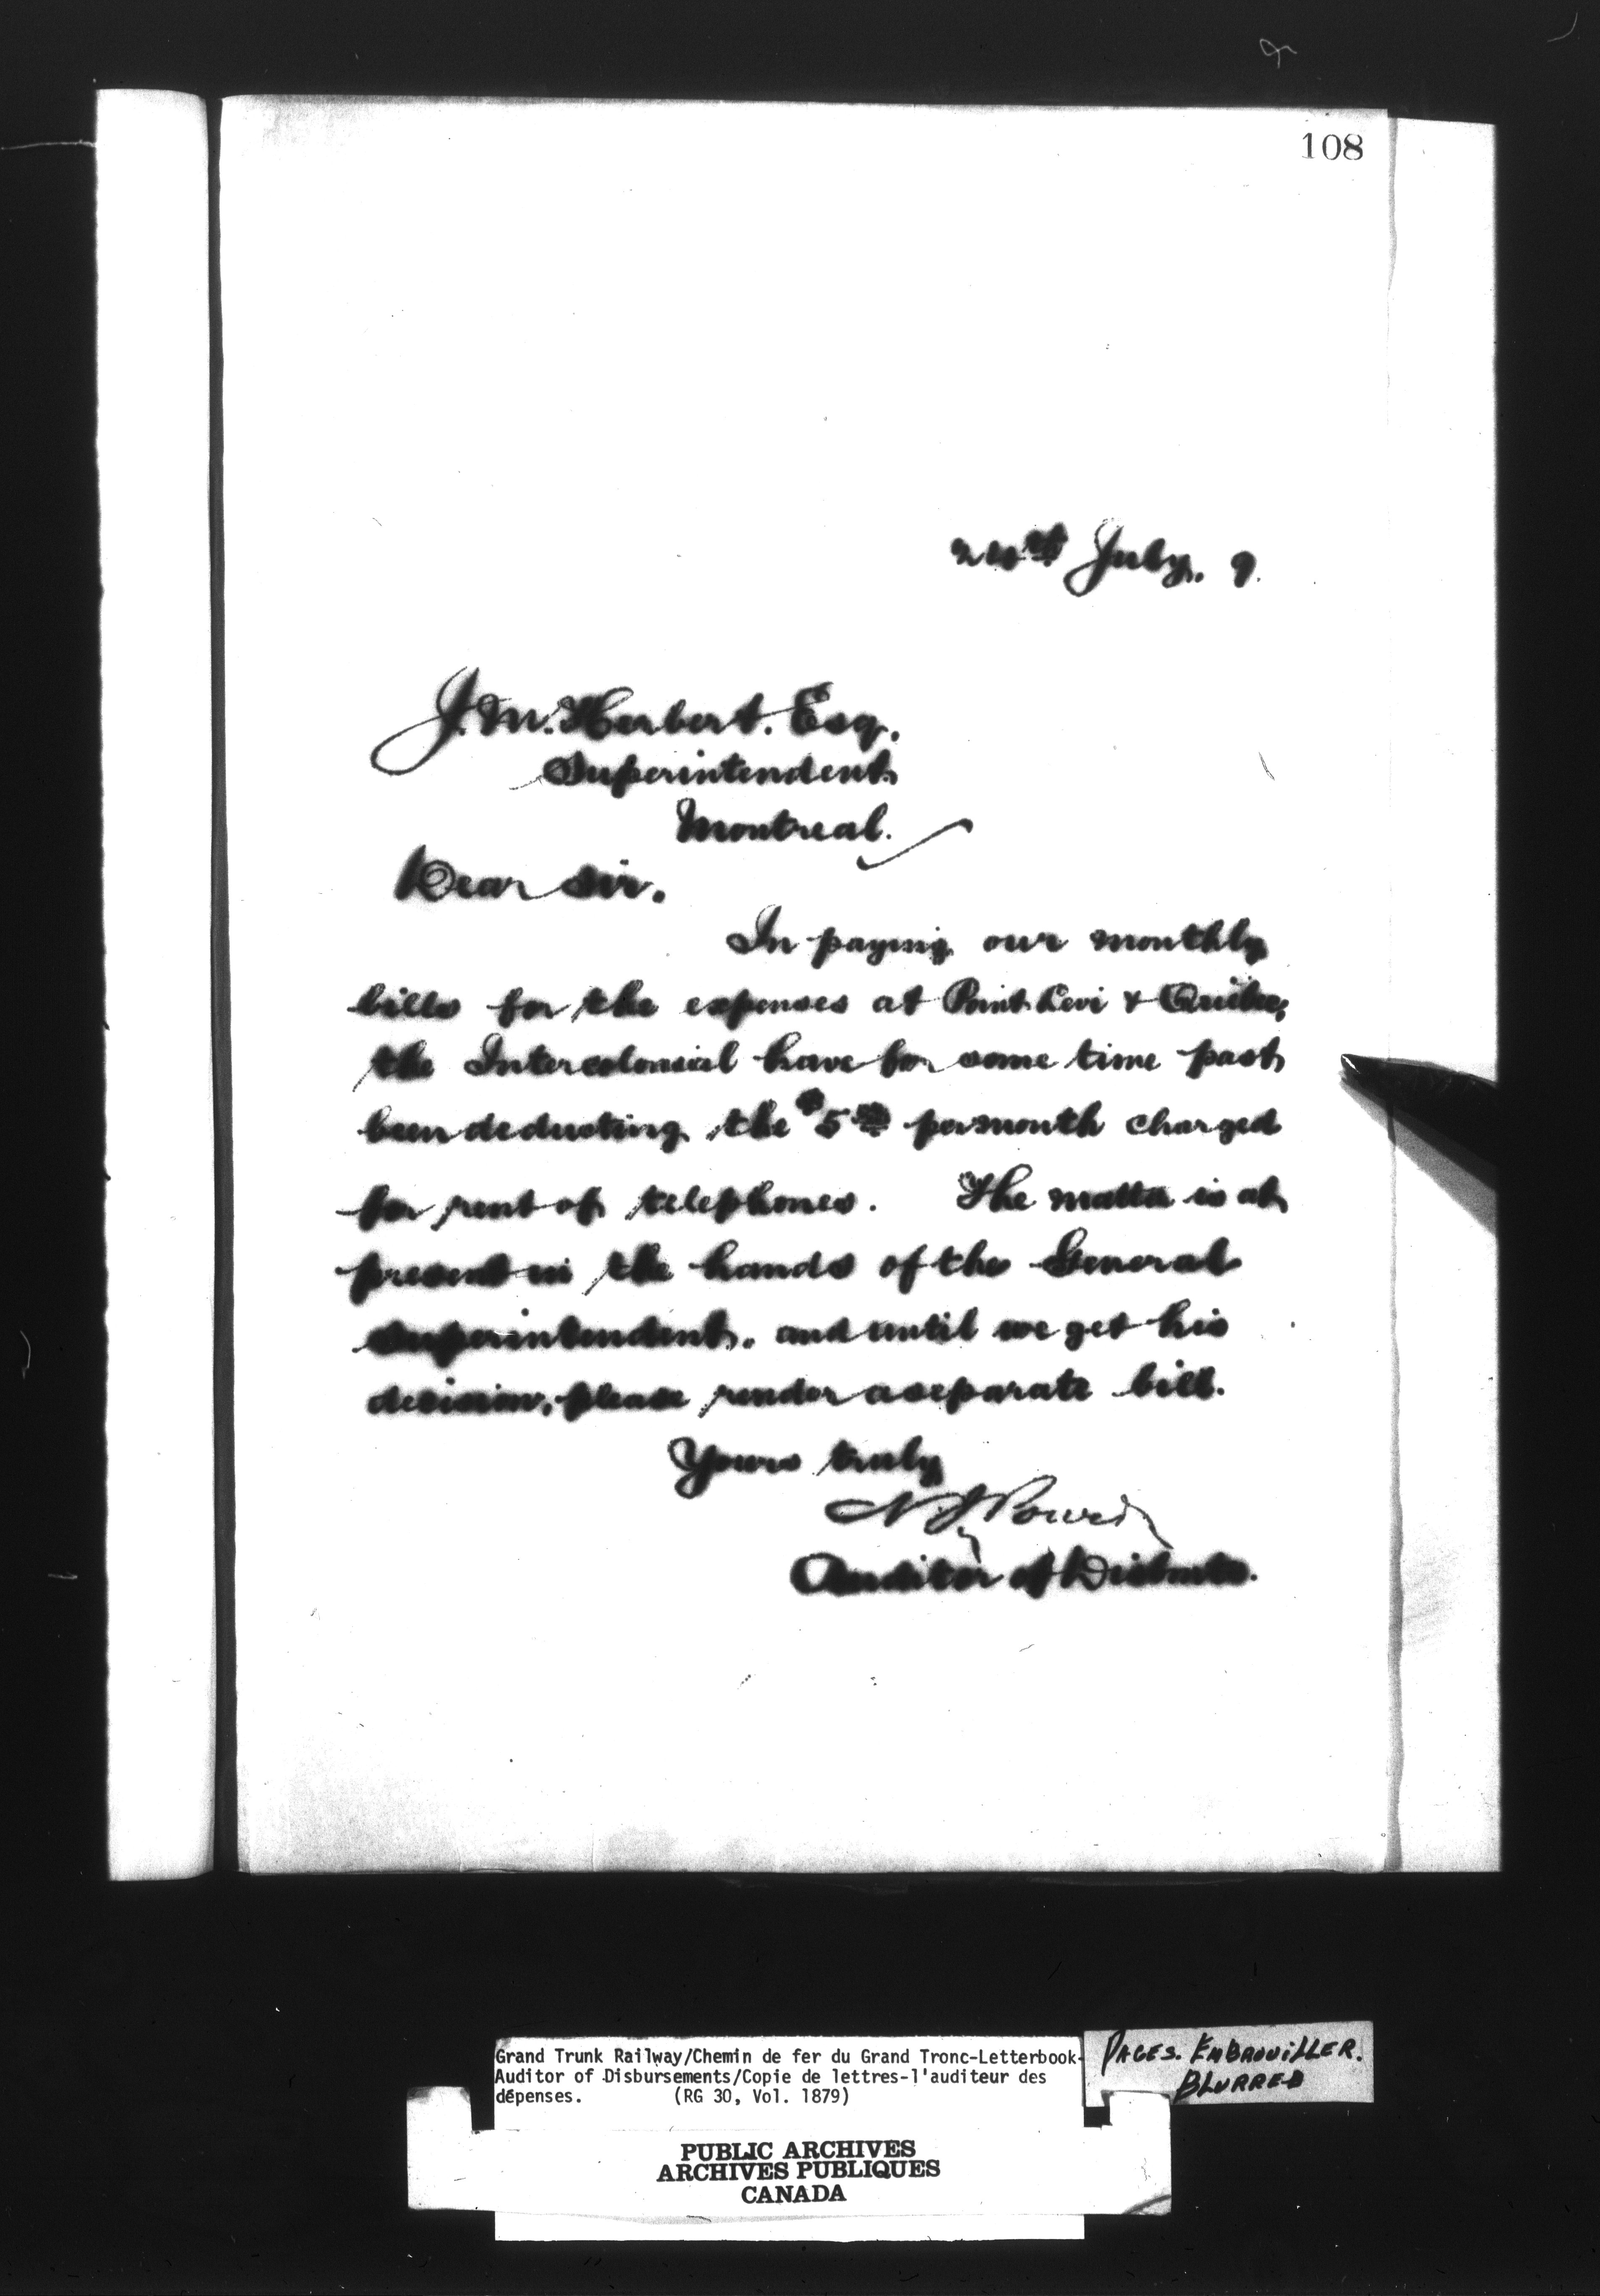 108
24th July. 9.
J. M. Herbert. Esq.
Superintendent
Montreal.
Dear Sir.
In paying our monthly
bills for the expenses at Point Levi & Quebec,
the Intercolonial have for some time past
been deducting the $5 00 per month charged
for rent of telephones. The matter is at
present in the hands of the General
Superintendent. and until we get his
decision, please render a separate bill.
Yours truly
N J Power
Auditor of Disbmts.
Grand Trunk Railway/Chemin de fer du Grand Tronc-Letterbook-
Auditor of Disbursements/Copie de lettres-l'auditeur des
dépenses. (RG 30, Vol. 1879)
PAGES. EMBROUILLER.
BLURRED
PUBLIC ARCHIVES
ARCHIVES PUBLIQUES
CANADA